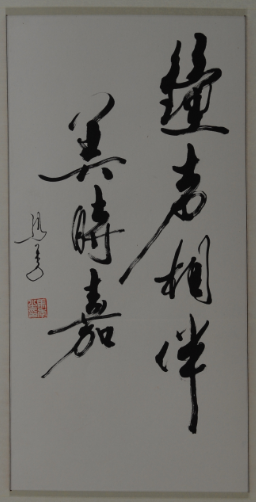 鐘声相伴
美時嘉